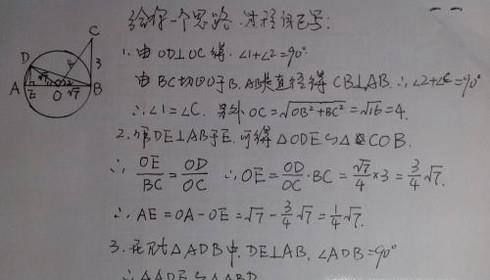 给你一个思路. 过程自己写:
C
4
3
D
√7
A
E
O
√7
B
1. 由OD⊥OC得. ∠1+∠2=90°
由BC切⊙O于B. AB是直径得 CB⊥AB. ∴∠2+∠C=90°
∴∠1=∠C. 另外 OC=√(OB²+BC²)=√16=4.
2. 作DE⊥AB于E. 可得△ODE∽△COB.
∴ OE/BC = OD/OC ∴OE=OD/OC·BC=√7/4×3=3/4√7.
∴AE=OA-OE=√7-3/4√7=1/4√7.
3. 在Rt△ADB中, DE⊥AB, ∠ADB=90°
∴△ADE∽△ABD